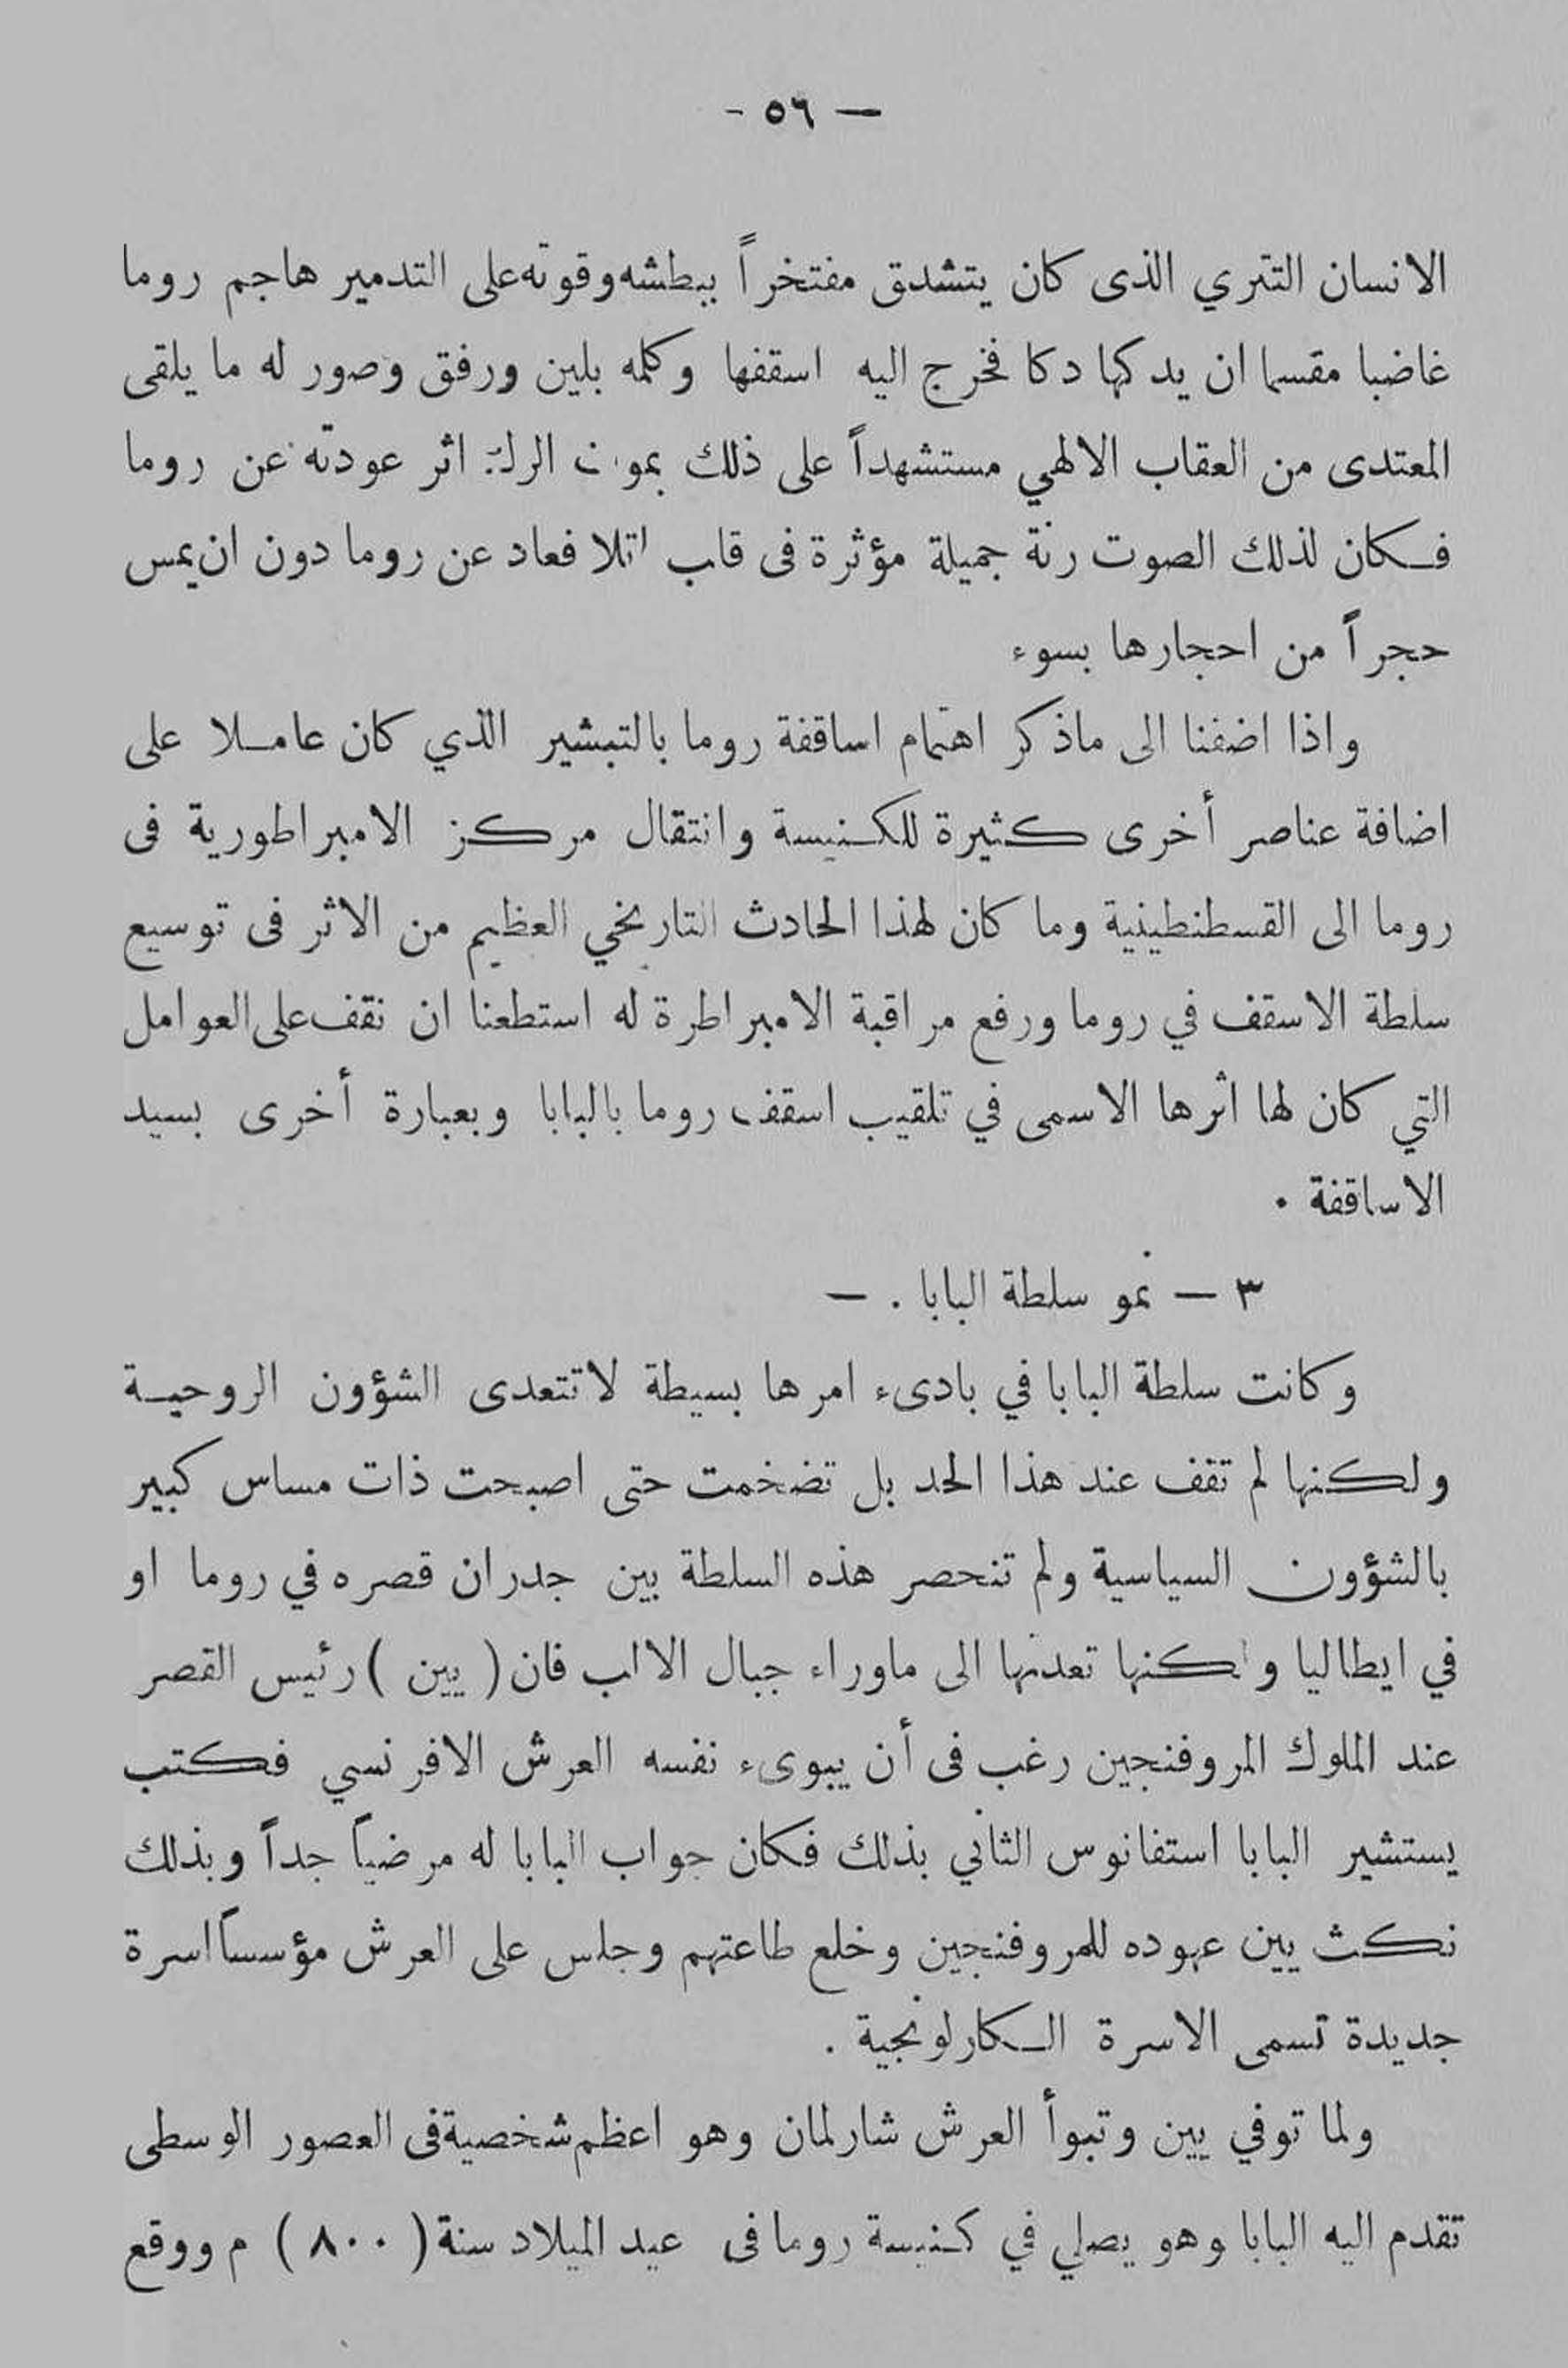 — ٥٦ -
الانسان التتري الذى كان يتشدق مفتخراً ببطشه وقوته على التدمير هاجم روما
غاضبا مقسما ان يدكها دكا فخرج اليه اسقفها وكلمه بلين ورفق وصور له ما يلقى
المعتدى من العقاب الالهي مستشهداً على ذلك بموت اثر عودته عن روما
فكان لذلك الصوت رنة جميلة مؤثرة فى قاب اتلا فعاد عن روما دون ان يمس
حجراً من احجارها بسوء
واذا اضفنا الى ماذكر اهتمام اساقفة روما بالتبشير الذي كان عاملا على
اضافة عناصر أخرى كثيرة للكنيسة وانتقال مركز الامبراطورية فى
روما الى القسطنطينية وما كان لهذا الحادث التاريخي العظيم من الاثر فى توسيع
سلطة الاسقف في روما ورفع مراقبة الامبراطرة له استطعنا ان نقف على العوامل
التي كان لها اثرها الاسمى في تلقيب اسقف روما بالبابا وبعبارة أخرى بسيد
الاساقفة .
٣ — نمو سلطة البابا . —
وكانت سلطة البابا في بادىء امرها بسيطة لا تتعدى الشؤون الروحية
ولكنها لم تقف عند هذا الحد بل تضخمت حتى اصبحت ذات مساس كبير
بالشؤون السياسية ولم تنحصر هذه السلطة بين جدران قصره في روما او
في ايطاليا ولكنها تعدتها الى ماوراء جبال الالب فان ( يين ) رئيس القصر
عند الملوك المروفنجين رغب فى أن يبوىء نفسه العرش الافرنسي فكتب
يستشير البابا استفانوس الثاني بذلك فكان جواب البابا له مرضياً جداً وبذلك
نكث يين عهوده للمروفنجين وخلع طاعتهم وجلس على العرش مؤسساً اسرة
جديدة تسمى الاسرة الكارلونجية .
ولما توفي يين وتبوأ العرش شارلمان وهو اعظم شخصية فى العصور الوسطى
تقدم اليه البابا وهو يصلي في كنيسة روما فى عيد الميلاد سنة ( ٨٠٠ ) م ووقع